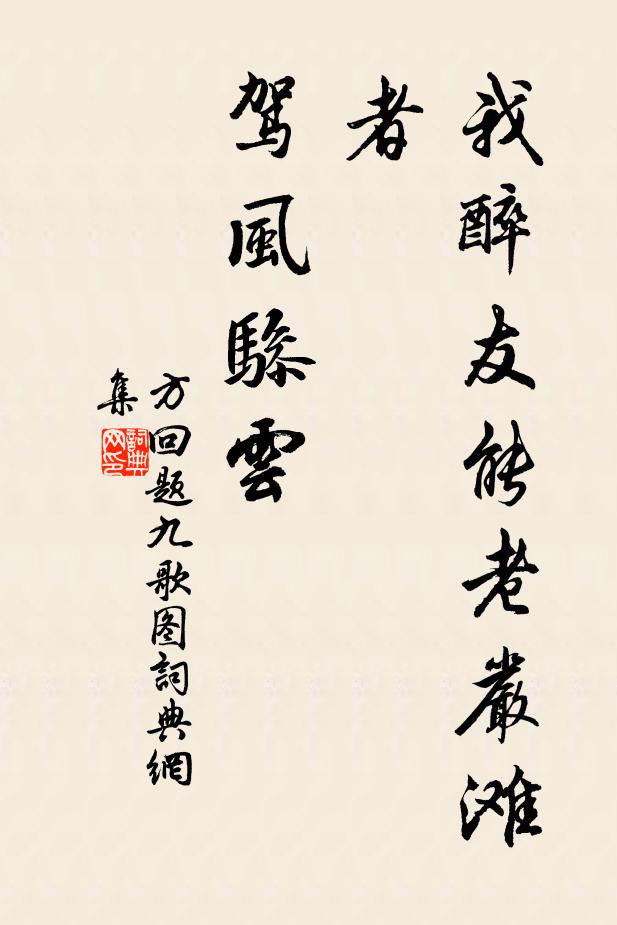 我醉友能老嚴滩
者
駕風騄雲
方回题九歌图詞典網
集
詞典
网印